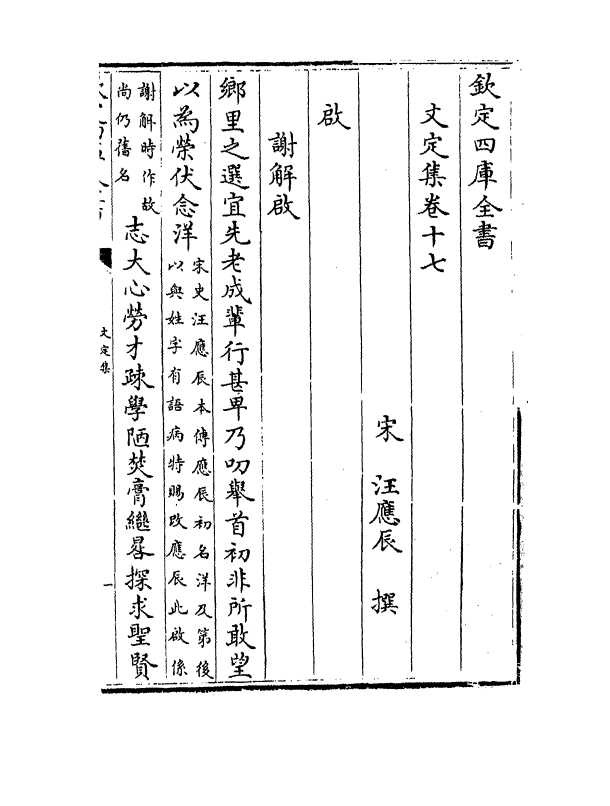 欽定四庫全書
文定集卷十七
宋 汪應辰 撰
啟
謝解啟
鄉里之選宜先老成輩行甚卑乃叨舉首初非所敢望
以為榮伏念洋
宋史汪應辰本傳應辰初名洋及第後
以與姓字有語病特賜改應辰此啟係
謝解時作故
尚仍舊名
志大心勞才疎學陋焚膏繼晷探求聖賢
文定集
一